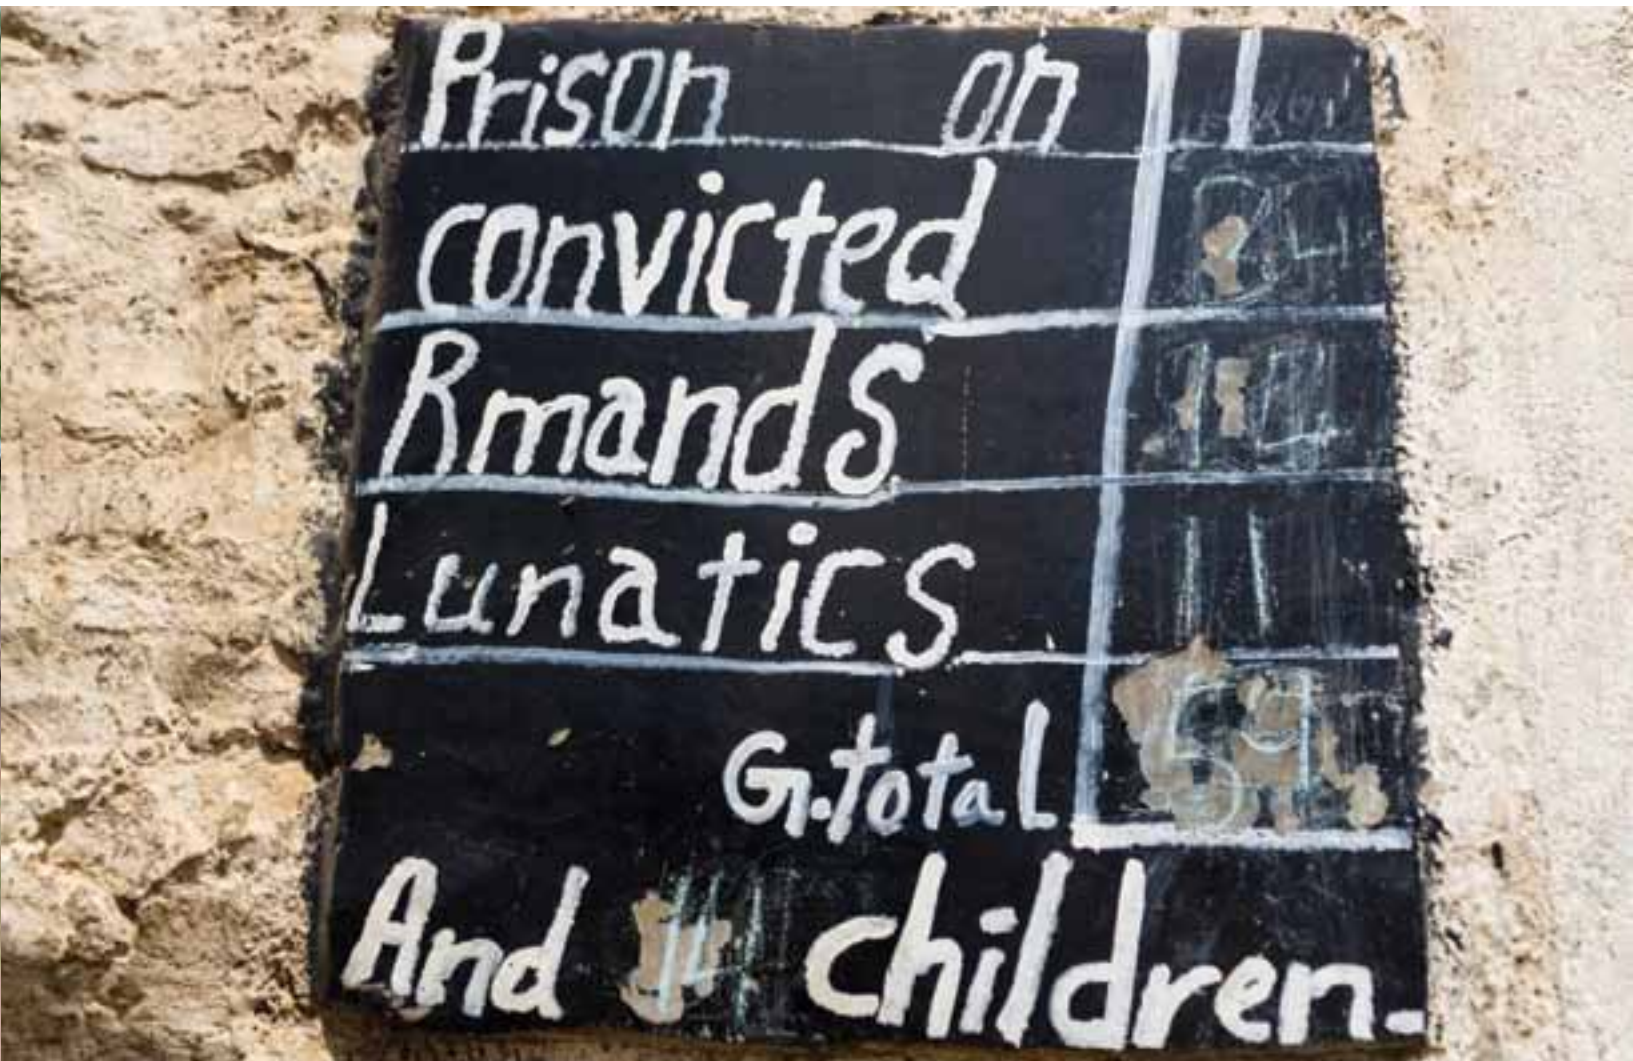 Prison on
convicted 34
Rmands
Lunatics 11
G.total 59
And children.